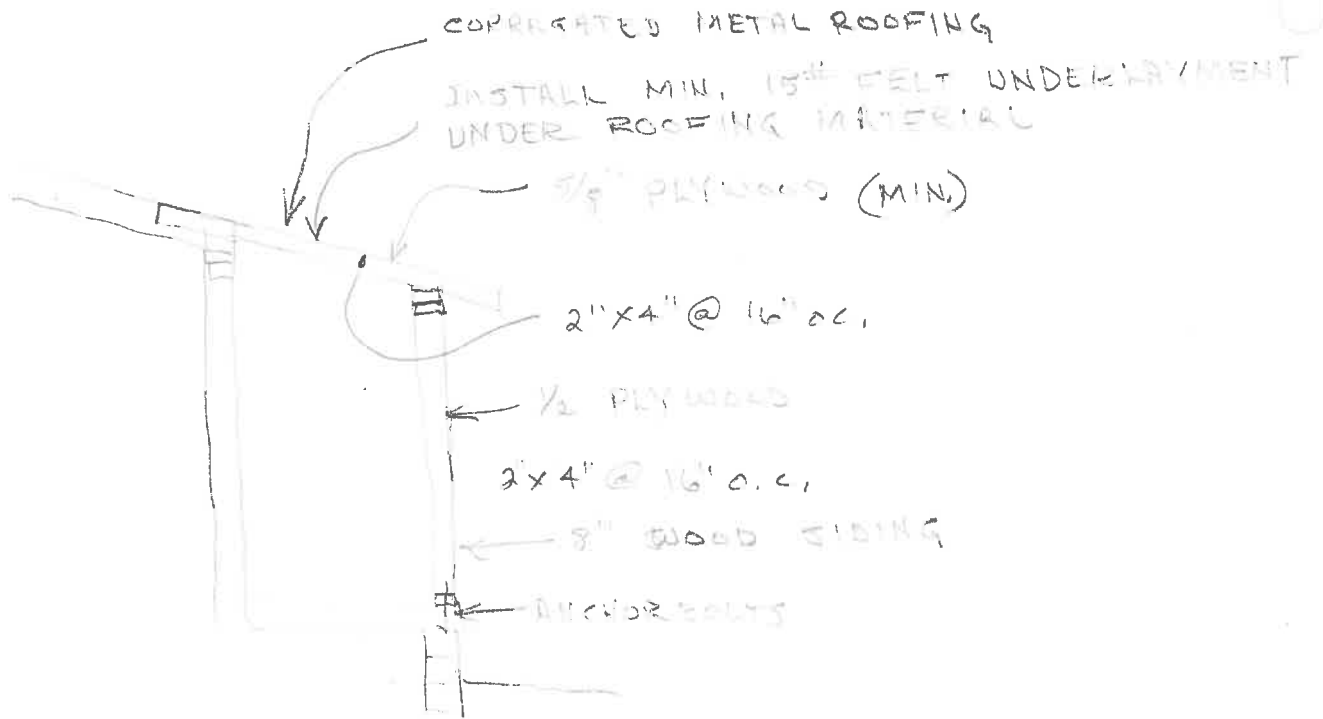 CORRGATED METAL ROOFING
INSTALL MIN. 15# FELT UNDERLAYMENT
UNDER ROOFING MATERIAL
5/8" PLYWOOD (MIN.)
2"x4" @ 16" oc.
1/2 PLYWOOD
2"x4" @ 16" o.c.
8" WOOD SIDING
ANCHOR BOLTS